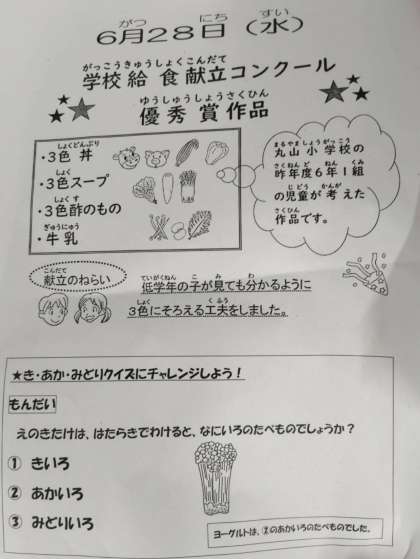 ６月２８日（水）
がつ にち すい
学校給食献立コンクール
がっこうきゅうしょくこんだて
優秀賞作品
ゆうしゅうしょうさくひん
・３色丼
しょくどんぶり
・３色スープ
しょく
・３色酢のもの
しょくす
・牛乳
ぎゅうにゅう
丸山小学校の
まるやましょうがっこう
昨年度６年１組
さくねんど ねん くみ
の児童が考えた
じどう かんが
作品です。
さくひん
献立のねらい
こんだて
低学年の子が見ても分かるように
ていがくねん こ み わ
３色にそろえる工夫をしました。
しょく くふう
★き・あか・みどりクイズにチャレンジしよう！
もんだい
えのきたけは、はたらきでわけると、なにいろのたべものでしょうか？
① きいろ
② あかいろ
③ みどりいろ
ヨーグルトは、②のあかいろのたべものでした。